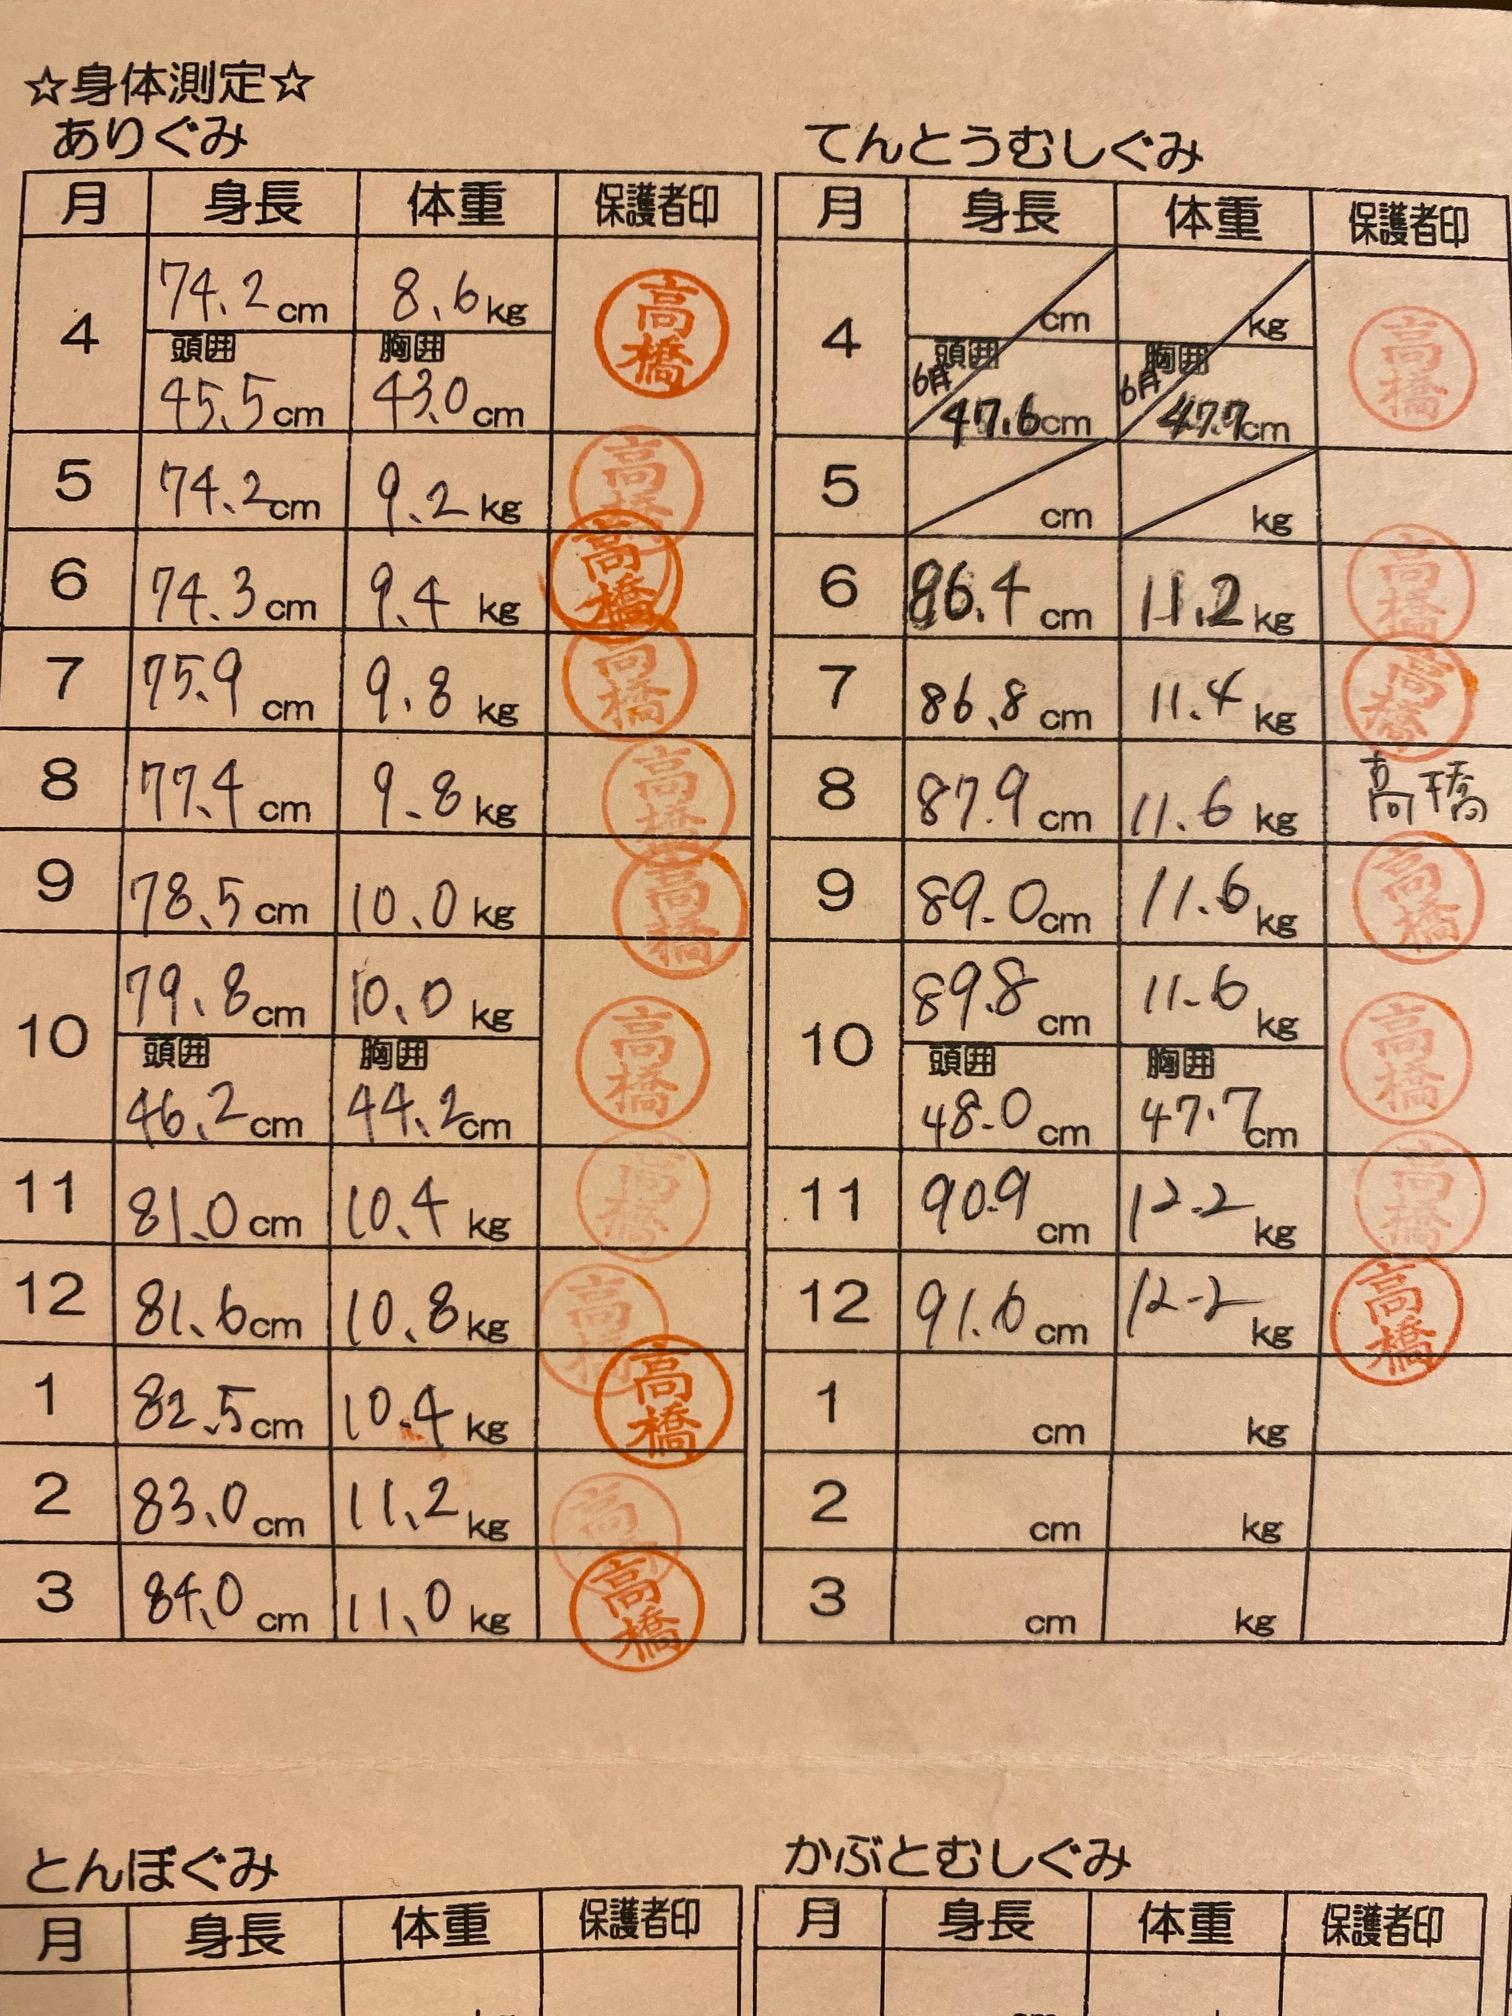 ☆身体測定☆
ありぐみ
月 身長 体重 保護者印
4 74.2cm 8.6kg 高橋
頭囲 胸囲
45.5cm 43.0cm
5 74.2cm 9.2kg 高橋
6 74.3cm 9.4kg 高橋
7 75.9cm 9.8kg 高橋
8 77.4cm 9.8kg 高橋
9 78.5cm 10.0kg 高橋
10 79.8cm 10.0kg 高橋
頭囲 胸囲
46.2cm 44.2cm
11 81.0cm 10.4kg 高橋
12 81.6cm 10.8kg 高橋
1 82.5cm 10.4kg 高橋
2 83.0cm 11.2kg 高
3 84.0cm 11.0kg 高橋
てんとうむしぐみ
月 身長 体重 保護者印
4 cm kg 高橋
頭囲 胸囲
6月 47.6cm 6月 47.7cm
5 cm kg
6 86.4cm 11.2kg 高橋
7 86.8cm 11.4kg 高橋
8 87.9cm 11.6kg 高橋
9 89.0cm 11.6kg 高橋
10 89.8cm 11.6kg 高橋
頭囲 胸囲
48.0cm 47.7cm
11 90.9cm 12.2kg 高橋
12 91.6cm 12.2kg 高橋
1 cm kg
2 cm kg
3 cm kg
とんぼぐみ
月 身長 体重 保護者印
かぶとむしぐみ
月 身長 体重 保護者印